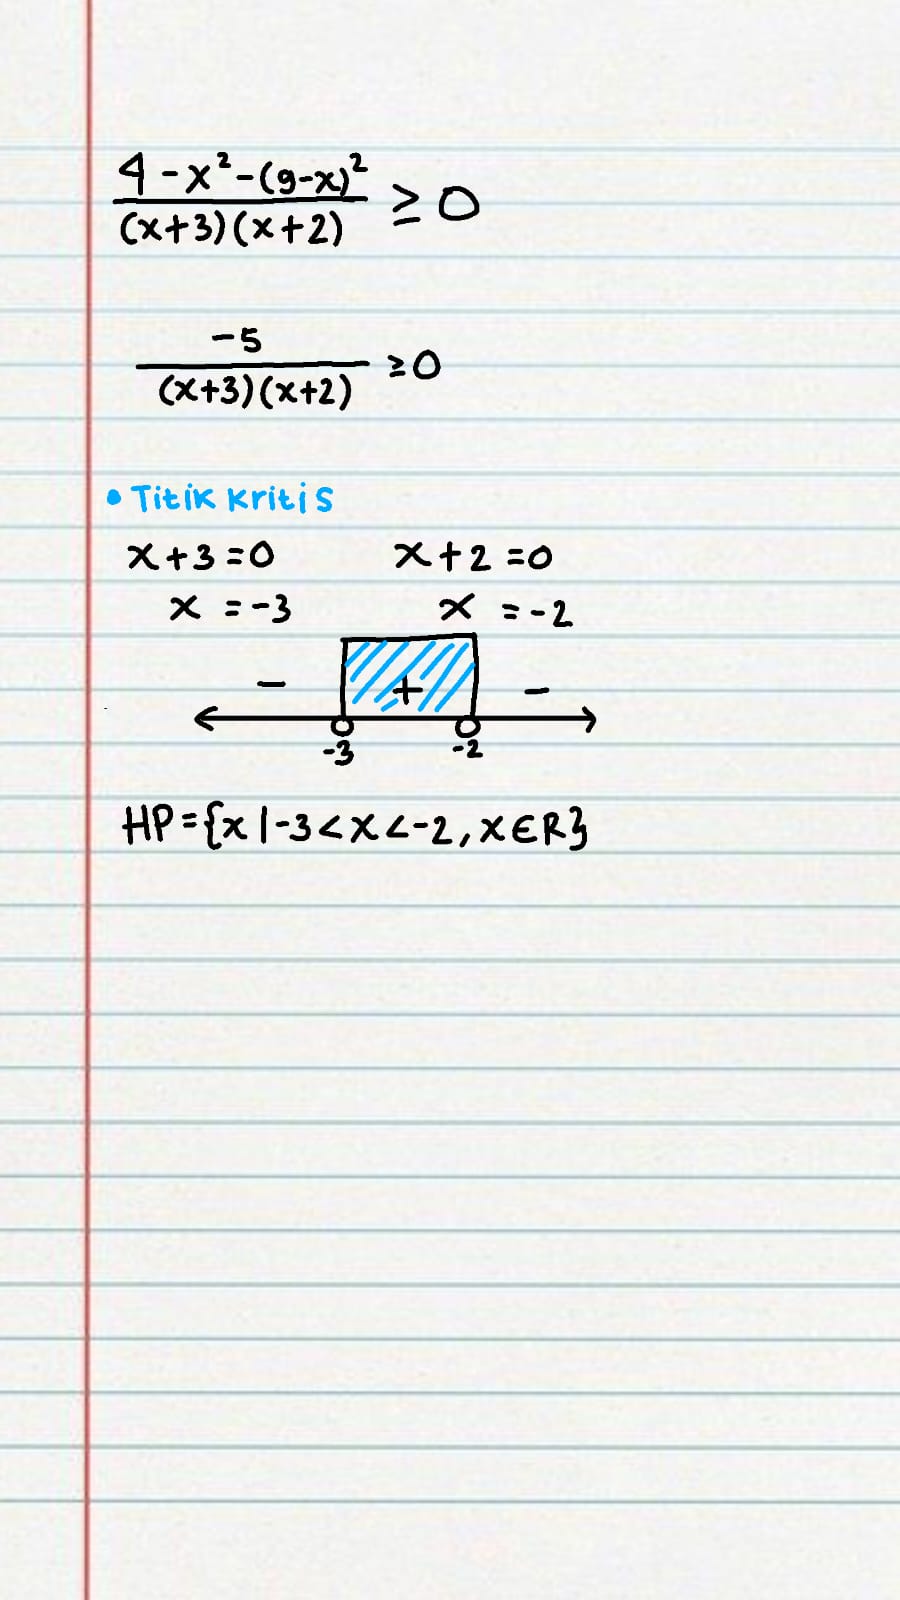 4-x²-(9-x)²
(x+3)(x+2) ≥ 0
-5
(x+3)(x+2) ≥0
• Titik Kritis
x+3=0 x+2=0
x = -3 x = -2
- + -
-3 -2
HP={x|-3<x<-2,x∈R}